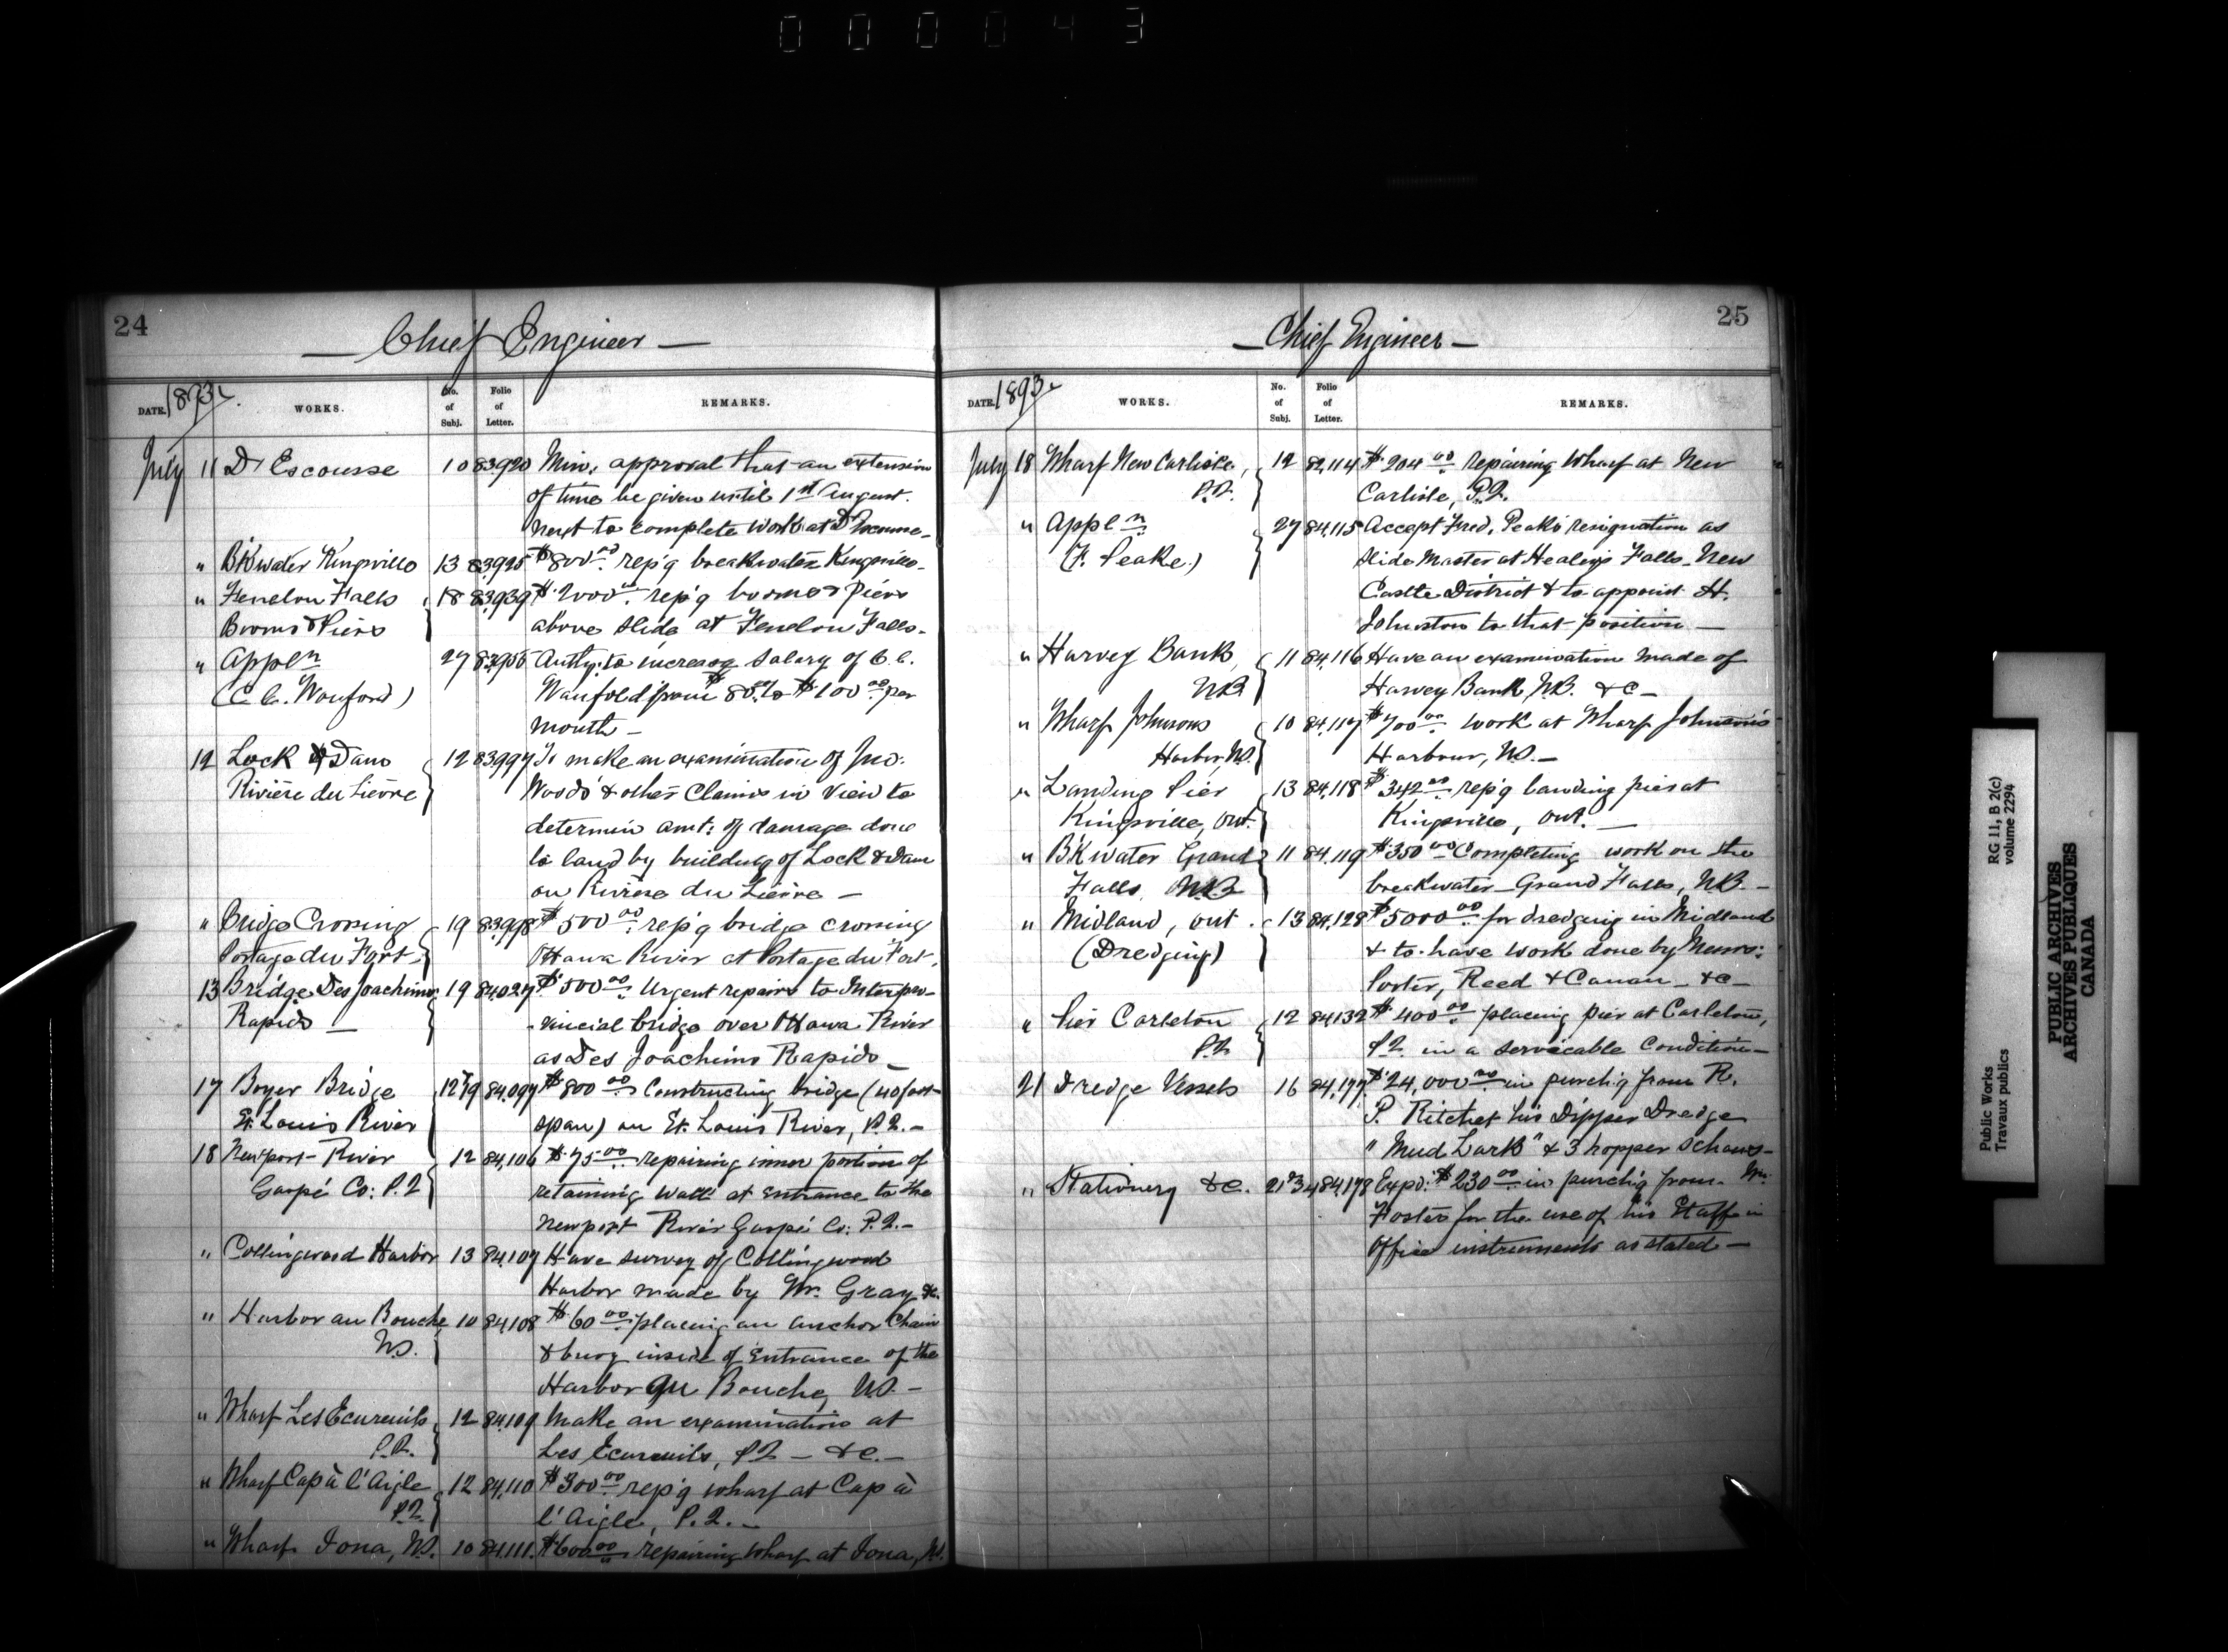 000043
24
Chief Engineer
DATE. 1893
WORKS.
No. of Subj.
Folio of Letter.
REMARKS.
July 11 D'Escousse 10 83920 Min. approval that an extension
of time be given until 1st August
next to complete work at D'Escousse
" B'Kwater Kingsville 13 83925 $800.00 rep'g breakwater Kingsville
" Fenelon Falls 18 83939 $2000.00 rep'g booms & piers
Booms & Piers above slide at Fenelon Falls.
" Apple n 27 Auth: to increase salary of C. C.
(C. C. Wanford) from $80.00 to $100.00 per
month
12 Lock & Dam 12 83997 To make an examination of Jno.
Rivière du Lièvre Woods' & other claims in view to
determin amt: of damage done
to land by building of Lock & Dam
on Rivière du Lièvre —
" Bridge Crossing 19 83998 $500.00 rep'g bridge crossing
Portage du Fort Ottawa River at Portage du Fort.
13 Bridge Des Joachims 19 84027 $500.00 Urgent repairs to Interpro-
Rapids — -vincial bridge over Ottawa River
as Des Joachims Rapids —
17 Boyer Bridge 12&19 84,097 $800.00 Constructing bridge (40 foot
St. Louis River span) on St. Louis River, P.Q. —
18 Newport River 12 84,106 $75.00 repairing inner portion of
Gaspé Co: P.Q. retaining wall at entrance to the
Newport River Gaspé Co: P.Q. —
" Collingwood Harbor 13 84,107 Have survey of Collingwood
Harbor made by Mr. Gray &c.
" Harbor au Bouche 10 84,108 $60.00 placing an anchor chain
N.S. & buoy inside of entrance of the
Harbor au Bouche, N.S. —
" Wharf Les Ecureuils 12 84,109 Make an examination at
P.Q. Les Ecureuils, P.Q. — &c. —
" Wharf Cap à l'Aigle 12 84,110 $300.00 rep'g wharf at Cap à
P.Q. l'Aigle, P.Q. —
" Wharf Iona, N.S. 10 84,111. $600.00 repairing wharf at Iona, N.S.
25
Chief Engineer
DATE. 1893
WORKS.
No. of Subj.
Folio of Letter.
REMARKS.
July 18 Wharf New Carlisle, 12 84,114 $204.00 repairing wharf at New
P.Q. Carlisle, P.Q.
" Apple n 27 84,115 Accept Fred. Peake's resignation as
(F. Peake) Slide Master at Healey's Falls, New
Castle District & to appoint H.
Johnston to that position —
" Harvey Bank 11 84,116 Have an examination made of
N.B. Harvey Bank, N.B. &c —
" Wharf Johnsons 10 84,117 $700.00 work at Wharf Johnson's
Harbor, N.S. Harbour, N.S. —
" Landing Pier 13 84,118 $342.00 rep'g landing pier at
Kingsville, Ont. Kingsville, Ont. —
" B'Kwater Grand 11 84,119 $350.00 Completing work on the
Falls, N.B. breakwater — Grand Falls, N.B. —
" Midland, Ont. 13 84,128 $5000.00 for dredging in Midland
(Dredging) & to have work done by Messrs:
Porter, Reed & Canan — &c —
" Pier Carleton 12 84132 $400.00 placing pier at Carleton,
P.Q. P.Q. in a servicable condition —
21 Dredge Vessels 16 84,177 $24,000.00 in purch'g from R.
P. Ritchet his Dipper Dredge
"Mud Lark" & 3 hopper schows —
" Stationery &c. 21&34 84,178 Exp'd: $230.00 in purch'g from Mr.
Foster for the use of his Staff in
Office instruments as stated —
Public Works
Travaux publics
RG 11, B 2(c)
volume 2294
PUBLIC ARCHIVES
ARCHIVES PUBLIQUES
CANADA